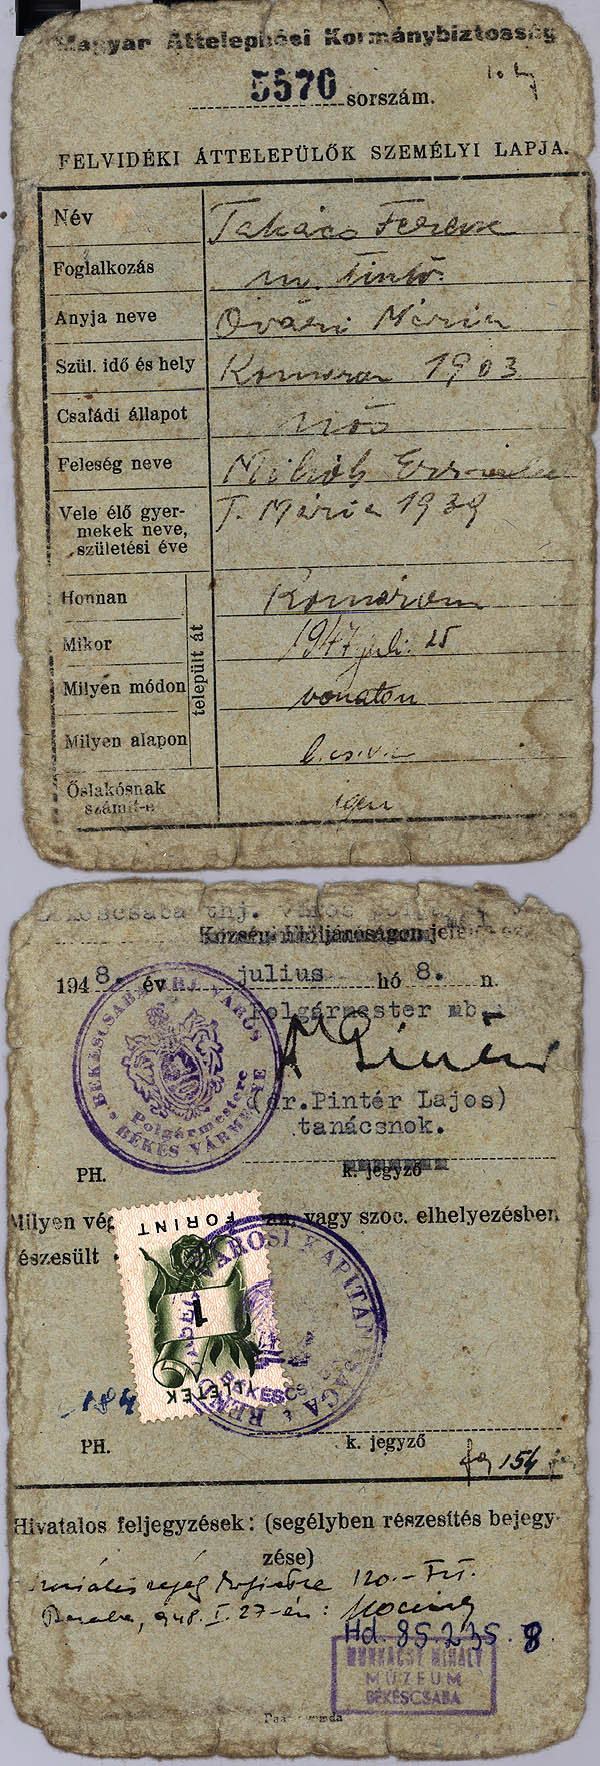 Magyar Áttelepítési Kormánybiztosság
5570 sorszám.
FELVIDÉKI ÁTTELEPÜLŐK SZEMÉLYI LAPJA.
Név Takács Ferenc
Foglalkozás
Anyja neve Óvári Mária
Szül. idő és hely Komárom 1903
Családi állapot nős
Feleség neve
Vele élő gyer-
mekek neve,
születési éve T. Mária 1939
települt át
Honnan Komárom
Mikor 1947 juli. 25
Milyen módon vonaton
Milyen alapon
Őslakósnak
számít-e igen
Békéscsaba thj. város
Község Elöljáróságon
1948. év julius hó 8. n.
Polgármester mb.
(dr.Pintér Lajos)
tanácsnok.
PH. k. jegyző
BÉKÉSCSABA
VÁROS
Polgármestere
BÉKÉS VÁRMEGYE
Milyen vég
vagy szoc. elhelyezésben
észesült
1 FORINT
ILLETÉK
VÁROSI KAPITÁNYSÁGA
184
PH. k. jegyző
154
Hivatalos feljegyzések: (segélyben részesítés bejegy-
zése)
120.- Frt.
948. I. 27-én:
Hd. 85.235.8.
MUNKÁCSY MIHÁLY
MÚZEUM
BÉKÉSCSABA